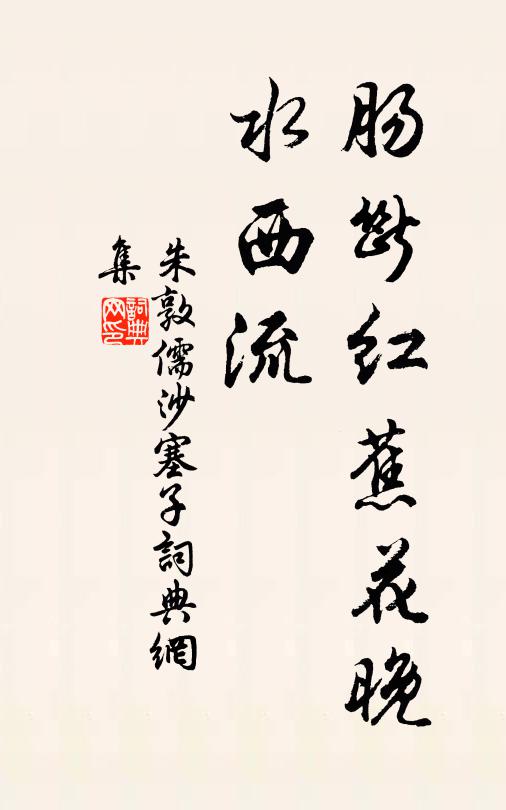 肠断红蕉花晚
水西流
朱敦儒沙塞子詞典網
集
詞典網印